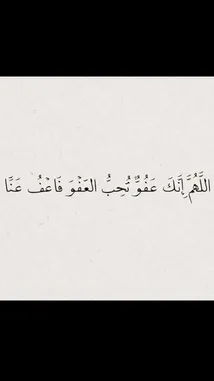 اللَّهُمَّ إِنَّكَ عَفُوٌّ تُحِبُّ العَفْوَ فَاعْفُ عَنَّا